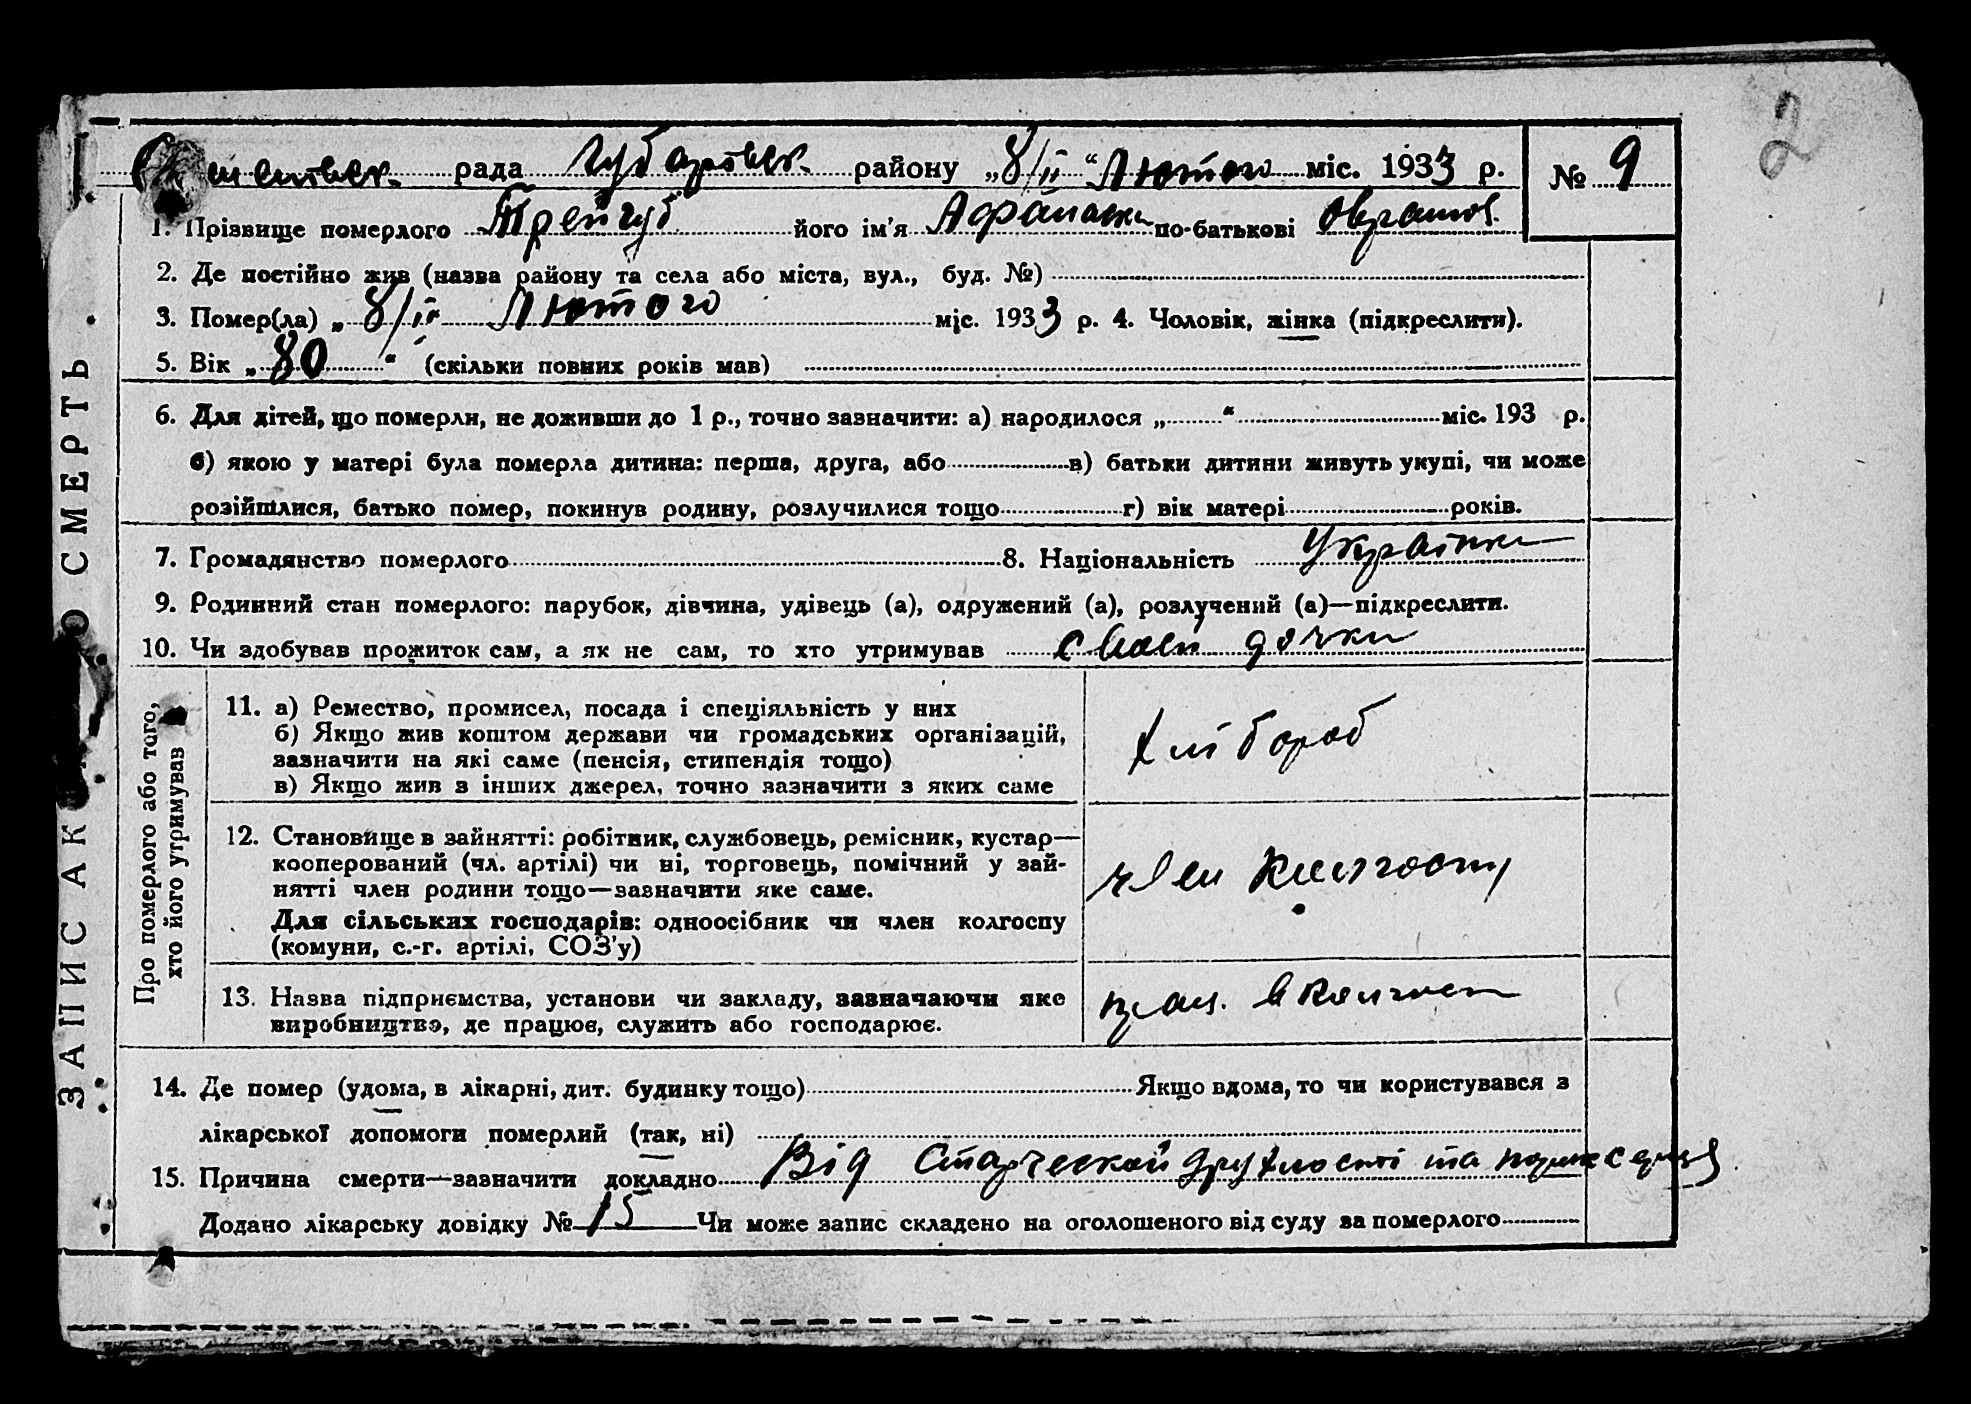 2
рада Чубарівськ району „8/ІІ“ Лютого міс. 1933 р. № 9
1. Прізвище померлого Трейгуб його ім'я по-батькові
2. Де постійно жив (назва району та села або міста, вул., буд. №)
3. Помер(ла) „8/ІІ Лютого міс. 1933 р. 4. Чоловік, жінка (підкреслити).
5. Вік „80“ (скільки повних років мав)
6. Для дітей, що померли, не доживши до 1 р., точно зазначити: а) народилося „ “ міс. 193 р.
б) якою у матері була померла дитина: перша, друга, або в) батьки дитини живуть укупі, чи може
розійшлися, батько помер, покинув родину, розлучилися тощо г) вік матері років.
7. Громадянство померлого 8. Національність Українка
9. Родинний стан померлого: парубок, дівчина, удівець (а), одружений (а), розлучений (а)—підкреслити.
10. Чи здобував прожиток сам, а як не сам, то хто утримував своєй дочки
ЗАПИС АКТУ О СМЕРТЬ
Про померлого або того,
хто його утримував
11. а) Ремество, промисел, посада і спеціяльність у них
б) Якщо жив коштом держави чи громадських організацій,
зазначити на які саме (пенсія, стипендія тощо)
в) Якщо жив з інших джерел, точно зазначити з яких саме
хлібороб
12. Становище в зайнятті: робітник, службовець, ремісник, кустар—
кооперований (чл. артілі) чи ні, торговець, помічний у зай-
нятті член родини тощо—зазначити яке саме.
Для сільських господарів: одноосібник чи член колгоспу
(комуни, с.-г. артілі, СОЗ'у)
член колгоспу
13. Назва підприємства, установи чи закладу, зазначаючи яке
виробництво, де працює, служить або господарює.
прац. в колгосп
14. Де помер (удома, в лікарні, дит. будинку тощо) Якщо вдома, то чи користувався з
лікарської допомоги померлий (так, ні)
15. Причина смерти—зазначити докладно Від Старческой друхлості та
Додано лікарську довідку № 15 Чи може запис складено на оголошеного від суду за померлого